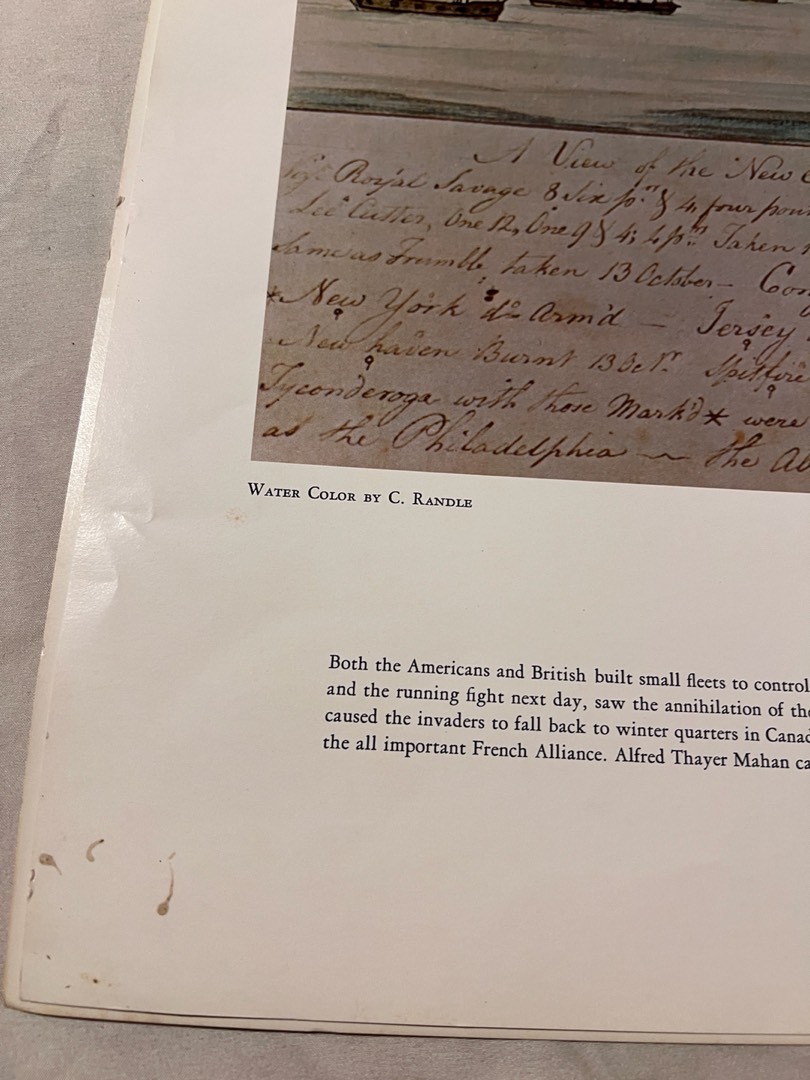 A View of the New
Royal Savage 8 Six pr. & 4, four poun
Lee Cutter, One 12, One 9 & 4; 4 prs Taken
Same as Trumble, taken 13 October — Con
*New York do. Arm'd — Jersey
New haven Burnt 13 Octr. Spitfire
Tyconderoga with those Mark'd * were
as the Philadelphia — the
WATER COLOR BY C. RANDLE
Both the Americans and British built small fleets to control
and the running fight next day, saw the annihilation of the
caused the invaders to fall back to winter quarters in Canad
the all important French Alliance. Alfred Thayer Mahan ca